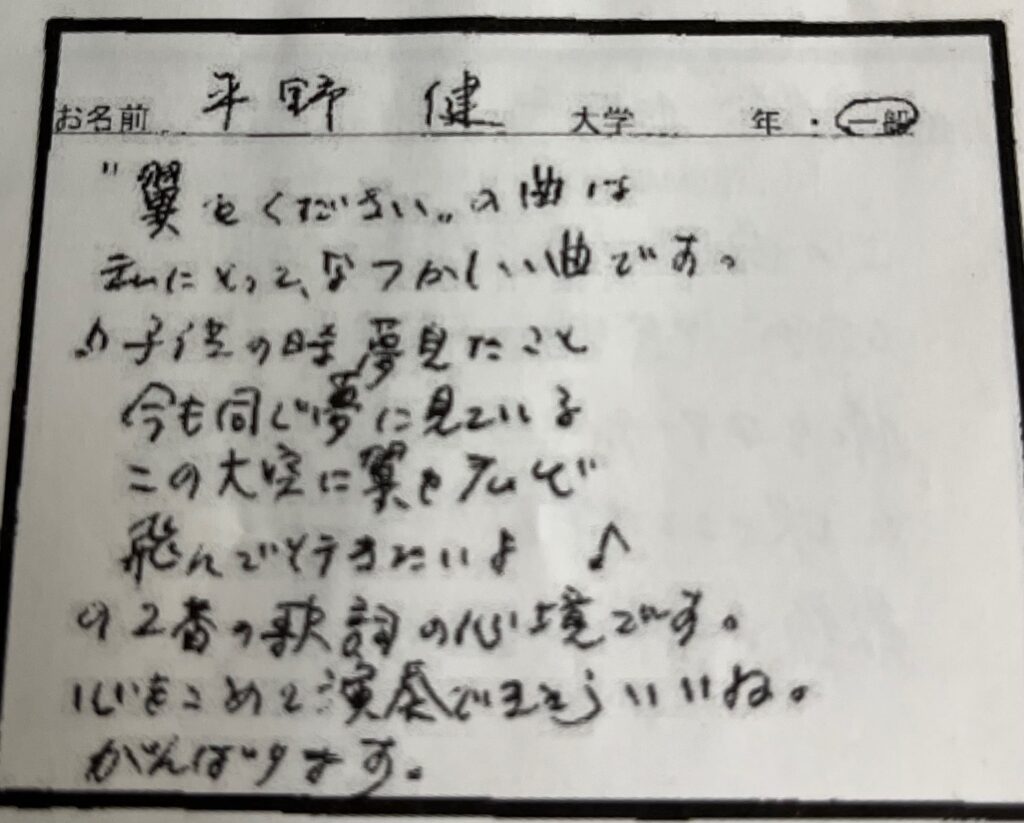 お名前 平野 健 大学 年・一般
"翼をください„の曲は
私にとって、なつかしい曲です。
♪子供の時夢見たこと
今も同じ夢に見ている
この大空に翼を広げ
飛んで行きたいよ ♪
の2番の歌詞の心境です。
心をこめて演奏できたらいいね。
がんばります。